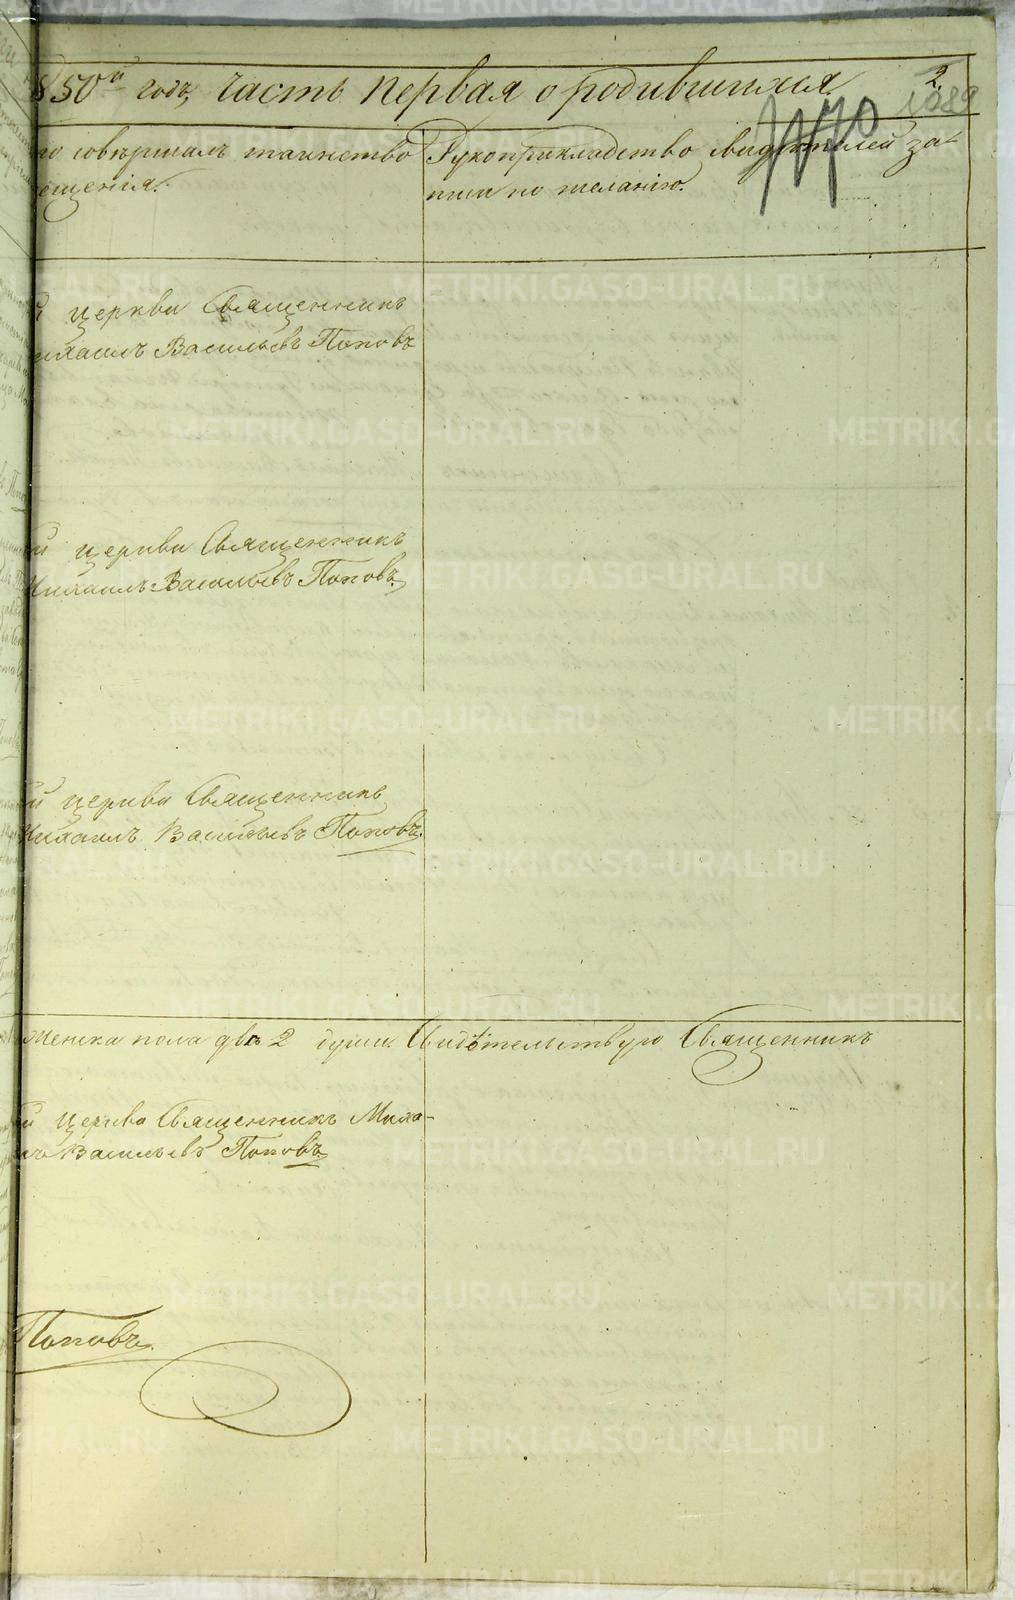 850й годъ, Часть первая о родившихся.
2
1089
го совѣршалъ таинство
ещенія.
Рукоприкладство свидѣтелей за-
писи по желанію.
й церкви Священникъ
ихаилъ Васильевъ Поповъ
й церкви Священникъ
Михаилъ Васильевъ Поповъ
й церкви Священникъ
Михаилъ Васильевъ Поповъ.
Женска пола двѣ 2 души. Свидѣтельствую Священникъ
й церкви Священникъ Миха-
илъ Васильевъ Поповъ
Поповъ.
METRIKI.GASO-URAL.RU